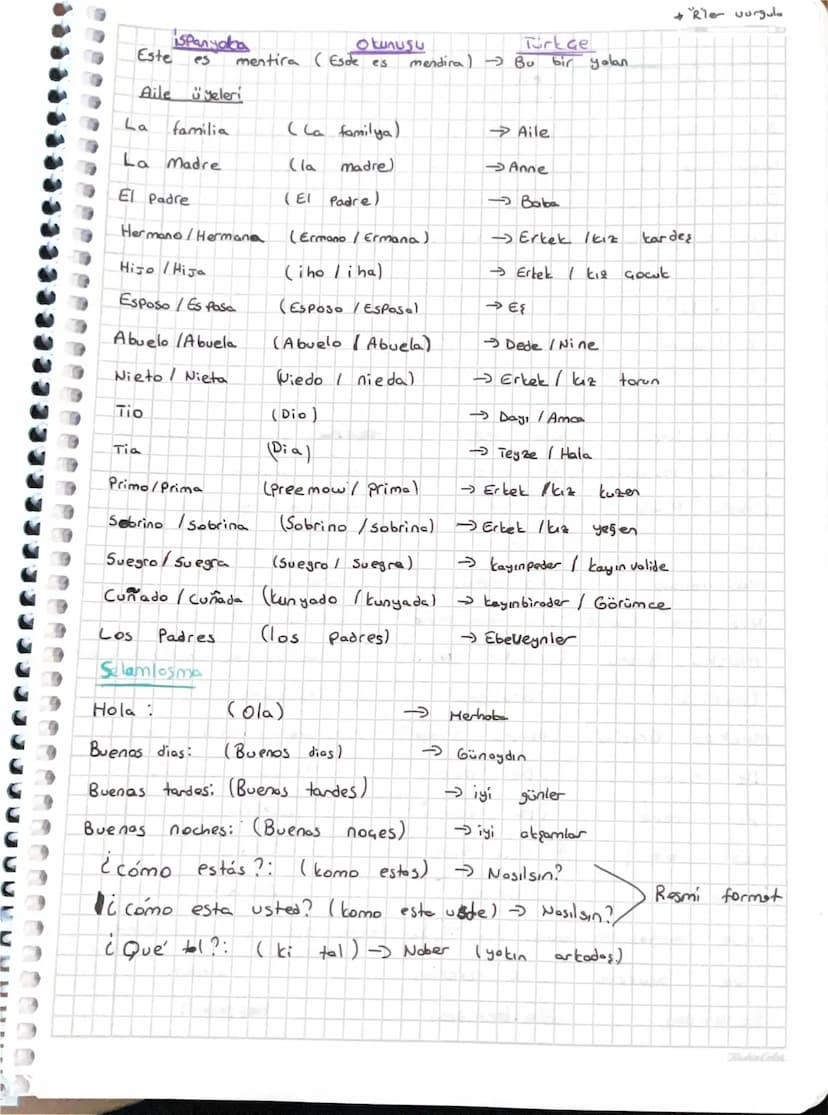 → "R"ler vurgulu
İspanyolca Okunuşu Türkçe
Este es mentira (Esde es mendira) → Bu bir yalan
Aile üyeleri
La familia (La familya) → Aile
La Madre (la madre) → Anne
El Padre (El Padre) → Baba
Hermano/Hermana (Ermano/Ermana) → Erkek/kız kardeş
Hijo/Hija (iho/iha) → Erkek/kız çocuk
Esposo/Esposa (Esposo/Esposa) → Eş
Abuelo/Abuela (Abuelo/Abuela) → Dede/Nine
Nieto/Nieta (Niedo/nieda) → Erkek/kız torun
Tio (Dio) → Dayı/Amca
Tia (Dia) → Teyze/Hala
Primo/Prima (preemow/prima) → Erkek/kız kuzen
Sobrino/Sobrina (Sobrino/sobrina) → Erkek/kız yeğen
Suegro/Suegra (Suegro/Suegra) → kayınpeder/kayın valide
Cuñado/Cuñada (kunyado/kunyada) → kayınbirader/Görümce
Los Padres (los padres) → Ebeveynler
Selamlaşma
Hola: (Ola) → Merhaba
Buenos dias: (Buenos dias) → Günaydın
Buenas tardes: (Buenas tardes) → iyi günler
Buenas noches: (Buenas noçes) → iyi akşamlar
¿cómo estás?: (komo estas) → Nasılsın?
¿cómo esta usted? (komo esta usde) → Nasılsın? Resmi format
¿Qué tal?: (ki tal) → Naber (yakın arkadaş)